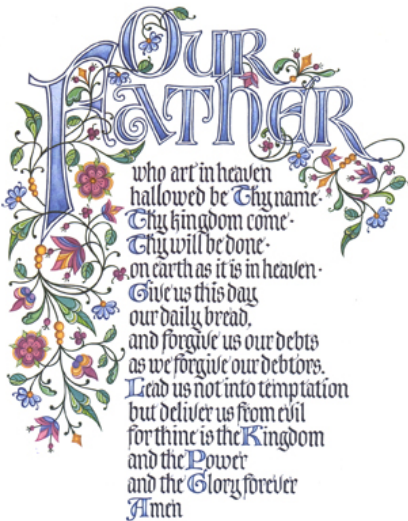 Our
Father
who art in heaven
hallowed be Thy name·
Thy kingdom come·
Thy will be done·
on earth as it is in heaven·
Give us this day
our daily bread,
and forgive us our debts
as we forgive our debtors.
Lead us not into temptation
but deliver us from evil
for thine is the Kingdom
and the Power
and the Glory forever
Amen